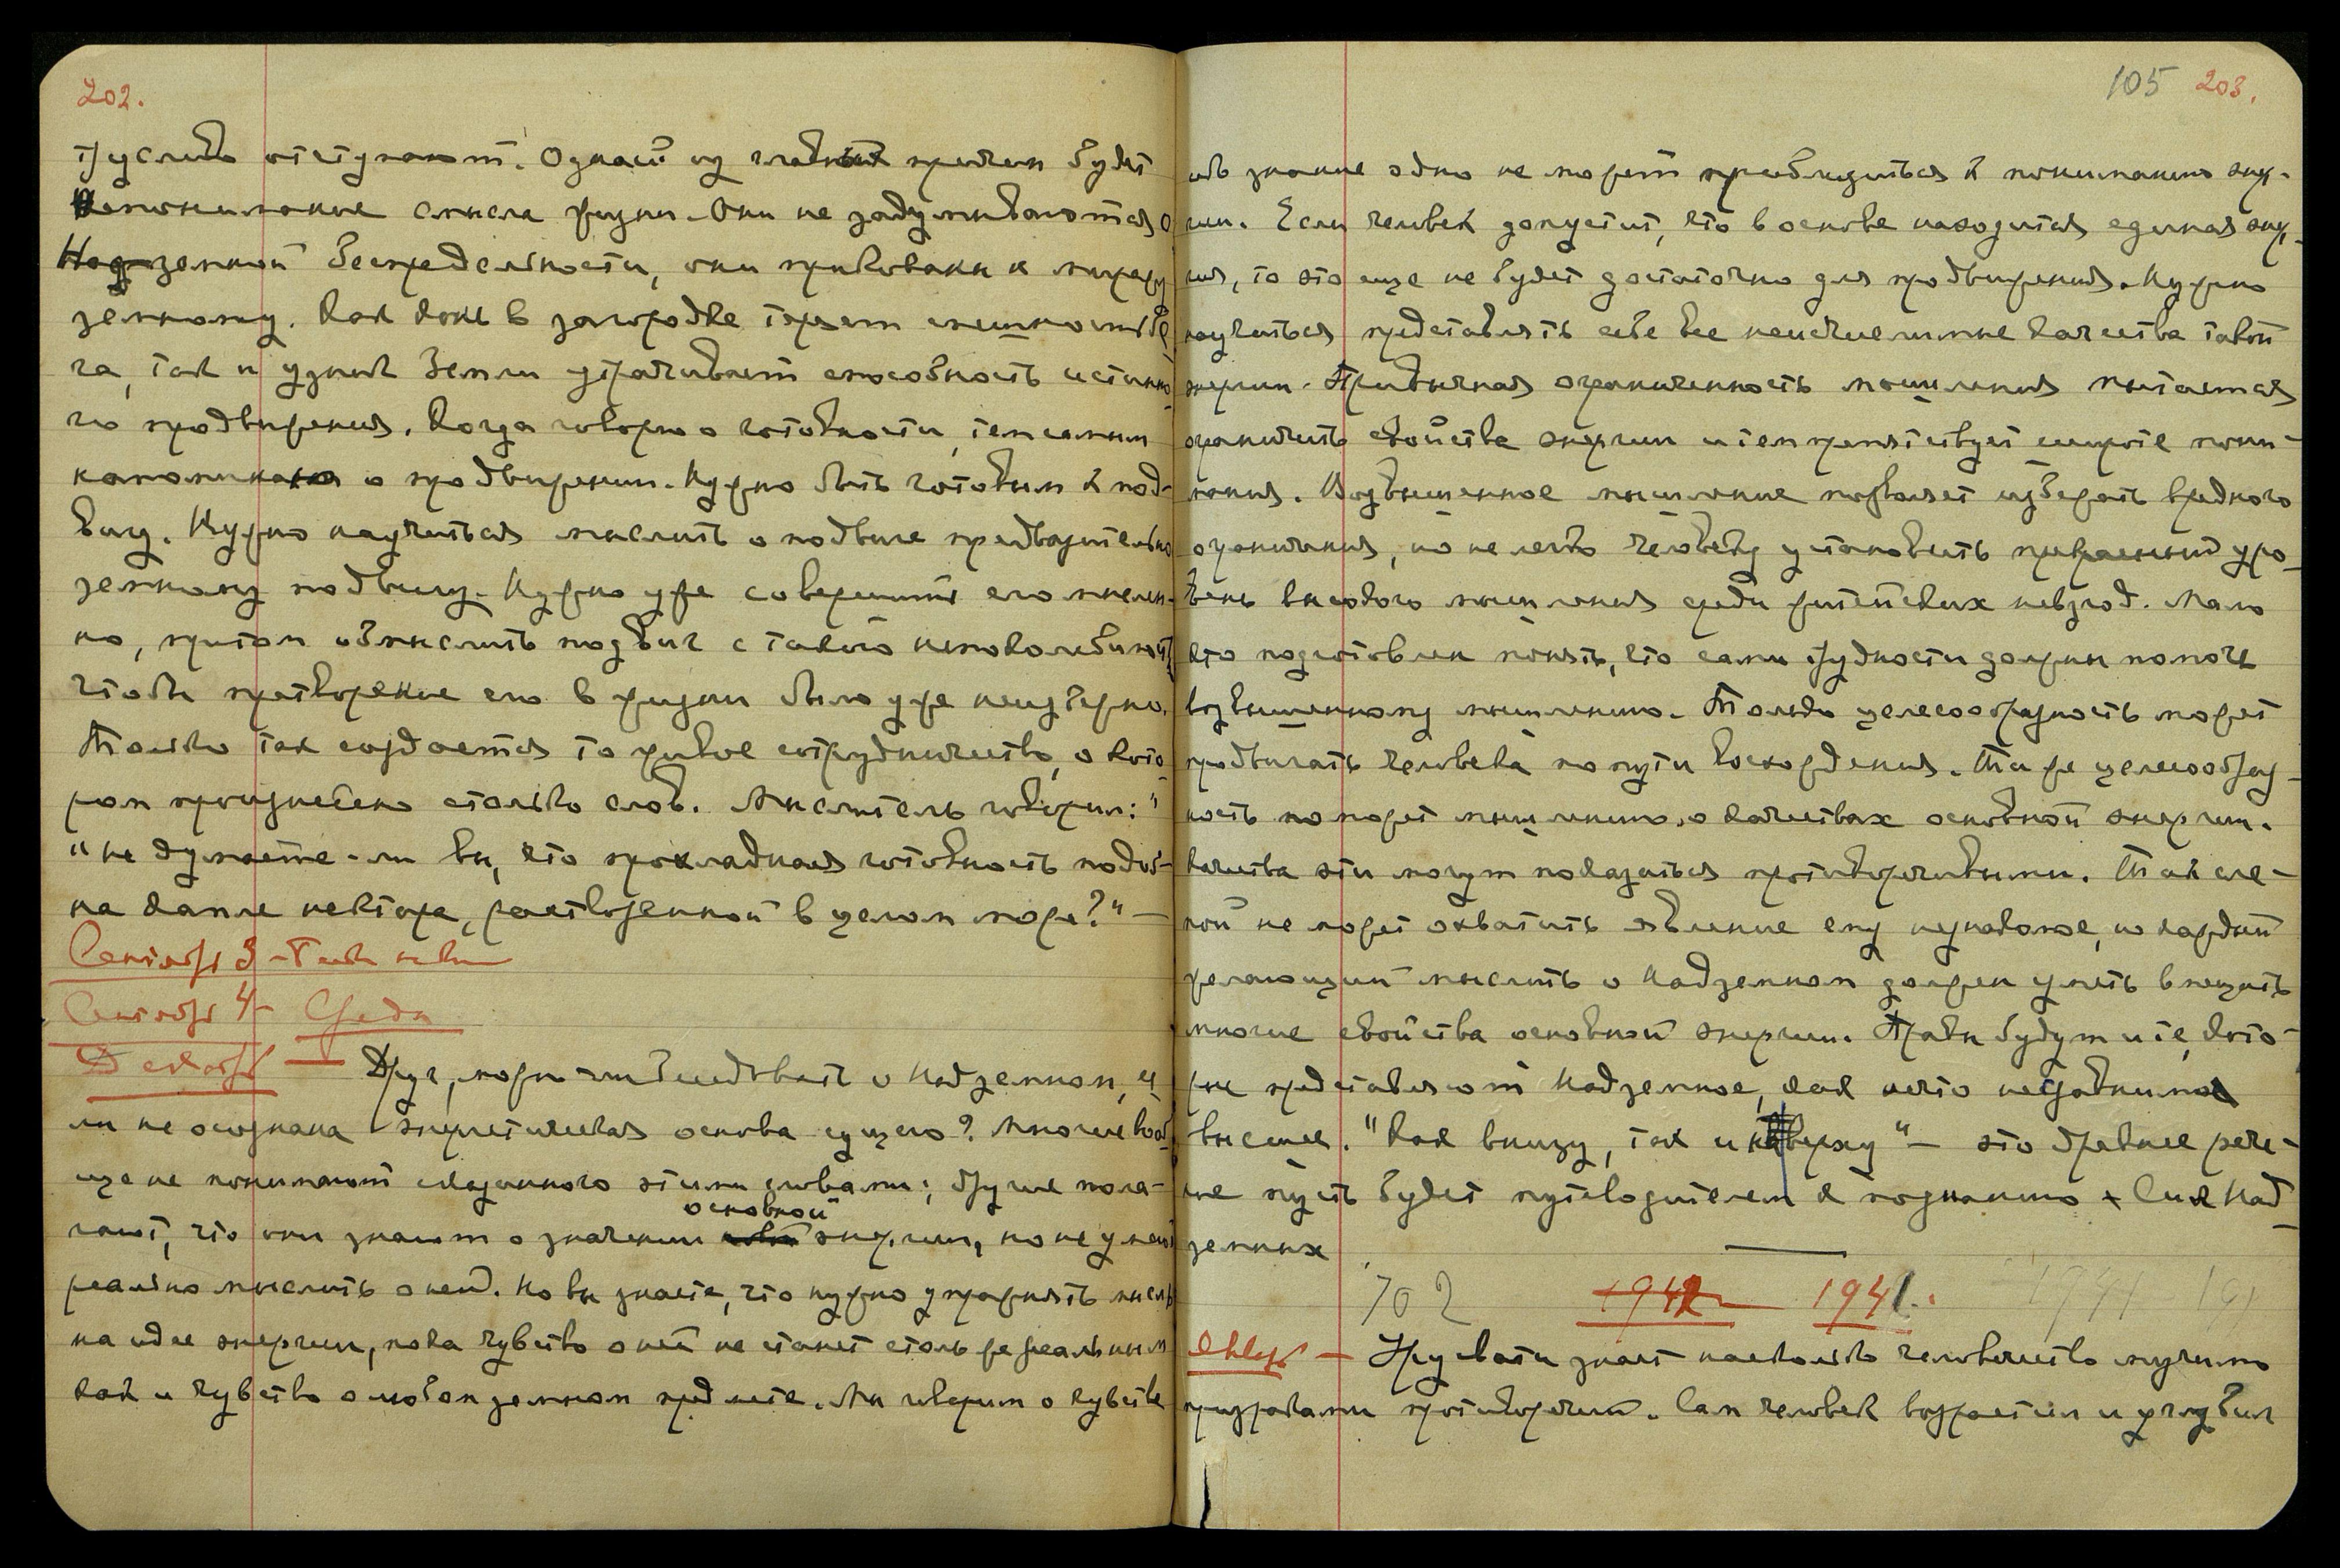 202.
трусливо отступают. Одной из главных причин будет
непонимание смысла жизни. Они не задумываются о
Надземной Беспредельности, они прикованы к миражу
земному. Как конь в загородке теряет спешность бе
га, так и узник Земли утрачивает способность истинно-
го продвижения. Когда говорю о готовности, тем самым
напоминаю о продвижении. Нужно быть готовым к под-
вигу. Нужно научиться мыслить о подвиге предварительно
земному подвигу. Нужно уже совершить его мыслен-
но, притом обмыслить подвиг с такою непоколебимост
чтобы претворение его в жизни было уже неизбежно.
Только так создается то живое сотрудничество, о кото-
ром произнесено столько слов. Мыслитель говорил: "
"не думаете-ли вы, что прохладная готовность подоб-
на капле нектара, растворенной в целом море?" —
Сентябрь 3 -
Сентябрь 4 - Среда
Декабрь — Друг, можно-ли беседовать о Надземном, ес
ли не осознана энергетическая основа сущего? Многие вооб
ще не понимают сказанного этими словами; другие пола-
основной
гают, что они знают о значении энергии, но не умеют
реально мыслить о ней. Но вы знаете, что нужно упражнять мысль
на идее энергии, пока чувство о ней не станет столь же реальным
как и чувство о любом земном предмете. Мы говорим о чувстве
105 203.
ибо знание одно не может приблизиться к пониманию энер-
гии. Если человек допустит, что в основе находится единая энер-
гия, то это еще не будет достаточно для продвижения. Нужно
научиться представлять себе все неисчислимые качества такой
энергии. Привычная ограниченность мышления пытается
ограничить свойства энергии и тем препятствует широте пони-
мания. Возвышенное мышление позволяет избегать вредного
ограничения, но не легко человеку установить прекрасный уро-
вень высокого мышления среди житейских невзгод. Мало
кто подготовлен понять, что сами трудности должны помочь
возвышенному мышлению. Только целесообразность может
продвигать человека по пути восхождения. Та же целесообраз-
ность поможет мышлению о качествах основной энергии.
Качества эти могут показаться противоречивыми. Так сле-
пой не может охватить явление ему незнакомое, но каждый
желающий мыслить о Надземном должен уметь вмещать
многие свойства основной энергии. Правы будут и те, кото-
рые представляют Надземное, как нечто несравнимое
высшее. "Как внизу, так и наверху" — это древнее рече-
ние пусть будет путеводителем к познанию Сил Над-
земных
702 1942 1941.
Январь — Урусвати знает насколько человечество мучимо
призраками противоречий. Сам человек возрастил и углубил